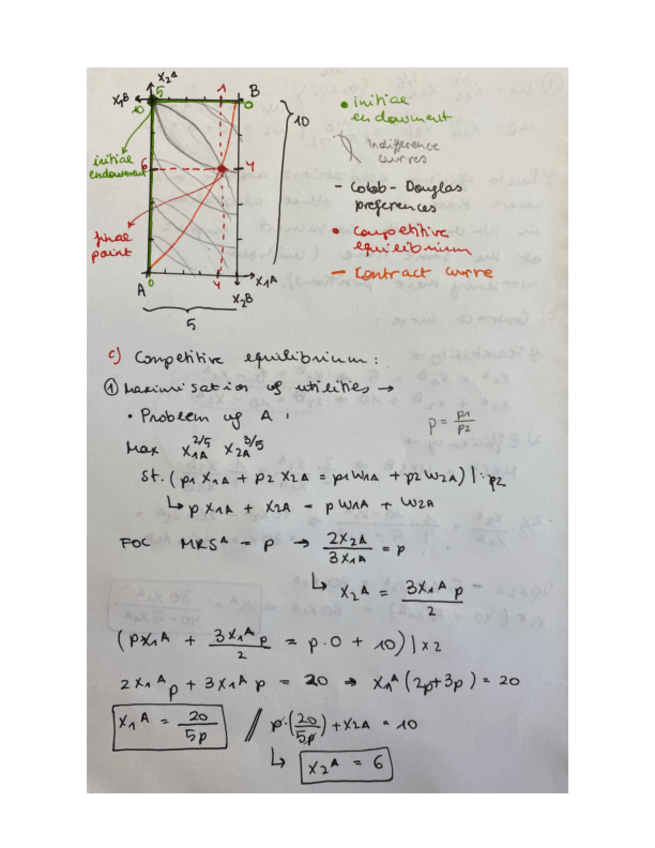 X₂A
X₁B
5
10
1
B
0
10
• initial
endowment
Indifference
curves
initial
endowment
6
4
- Cobb-Douglas
preferences
• competitive
equilibrium
final
point
— Contract curve
0
A
4
X₁A
X₂B
5
c) Competitive equilibrium:
① Maximisation of utilities →
• Problem of A:
p = p₁/p₂
Max X₁A^2/5 X₂A^3/5
st. (p₁ X₁A + p₂ X₂A = p₁W₁A + p₂ W₂A) | : p₂
↳ p X₁A + X₂A = p W₁A + W₂A
FOC MRSᴬ = p → 2X₂A/3X₁A = p
↳ X₂ᴬ = 3X₁ᴬ p/2
(pX₁A + 3X₁ᴬp/2 = p·0 + 10) | x2
2X₁ᴬp + 3X₁ᴬp = 20 → X₁ᴬ(2p+3p) = 20
X₁ᴬ = 20/5p // p·(20/5p) + X₂A = 10
↳ X₂ᴬ = 6